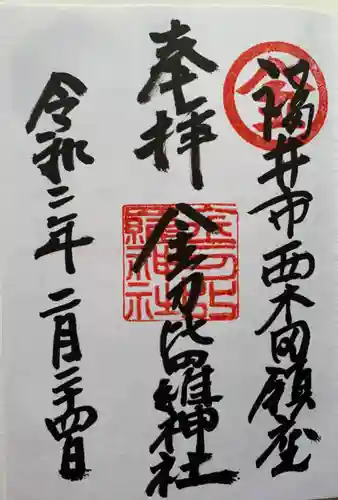 福井市西木田鎮座
奉拝
金刀比羅神社
令和二年二月二十四日
金